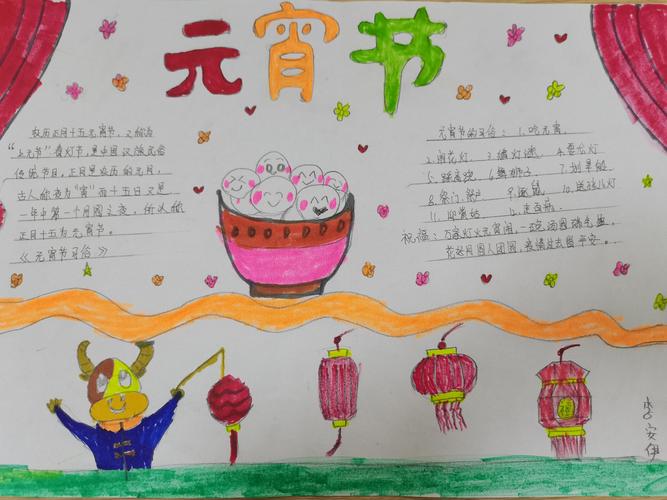 元宵节
农历正月十五元宵节，又称为
“上元节”春灯节，是中国汉族民俗
传统节日，正月是农历的元月，
古人称夜为“宵”而十五日又是
一年中第一个月圆之夜，所以称
正月十五为元宵节。
《元宵节习俗》
元宵节的习俗：1.吃元宵
2.闹花灯 3.猜灯谜 4.耍龙灯
5.踩高跷 6.舞狮子 7.划旱船
8.祭门、祭户 9.逐鼠 10.送孩儿灯
11.迎紫姑 12.走百病
祝福：万家灯火元宵闹，一碗汤圆瑞毛盛，
花好月圆人团圆，疫情过去皆平安。
福
李安伊